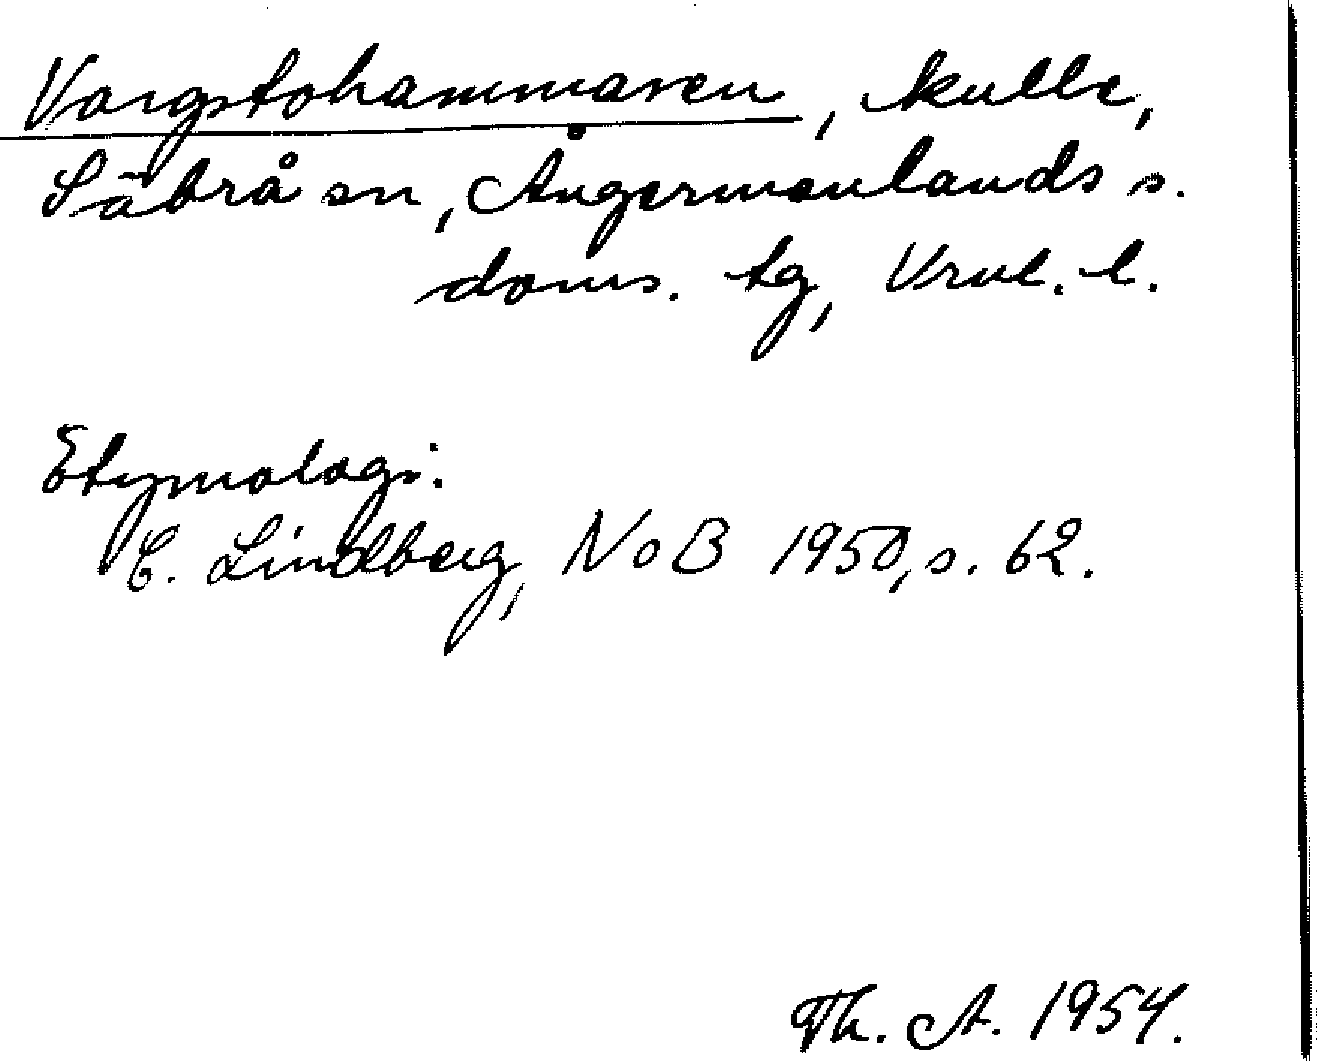 Vargstohammaren, kulle,
Säbrå sn, Ångermanlands s.
doms. tg, Vnl. l.
Etymologi:
C. Lindberg, NoB 1950, s. 62.
Th. A. 1954.